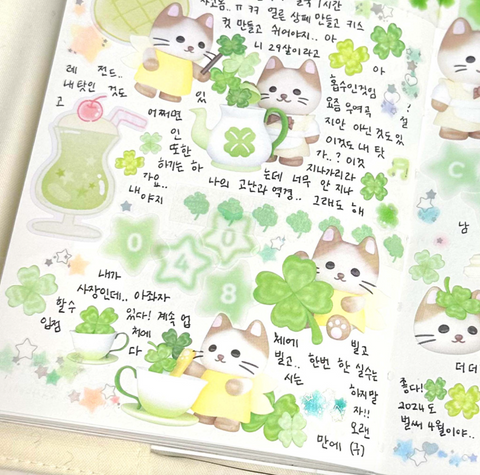 1시간
얼른 상페 만들고 키스
컷 만들고 쉬어야지.. 아
니 29살이라고
아
흡수인것임
요즘 우여곡
지안 아닌 것도있
이것도 내 탓
가..? 이것
지나가리라
레 전드..
내 탓인 것도 있
고 어쩌면
인
또한
하기는 하 는데 너무 안 지나
가요.. 나의 고난과 역경.. 그래도 해
내 야지
!
설
C
남
0 4 0 8
내가
사장인데.. 아좌자
할 수 있다! 계속 업
입점 처에
다
체에 빌고
빌고.. 한번 한 실수는
시는 하지말
자!!
오랜
만에 (구)
더 더
좋다!
2024도
벌써 4월이야..